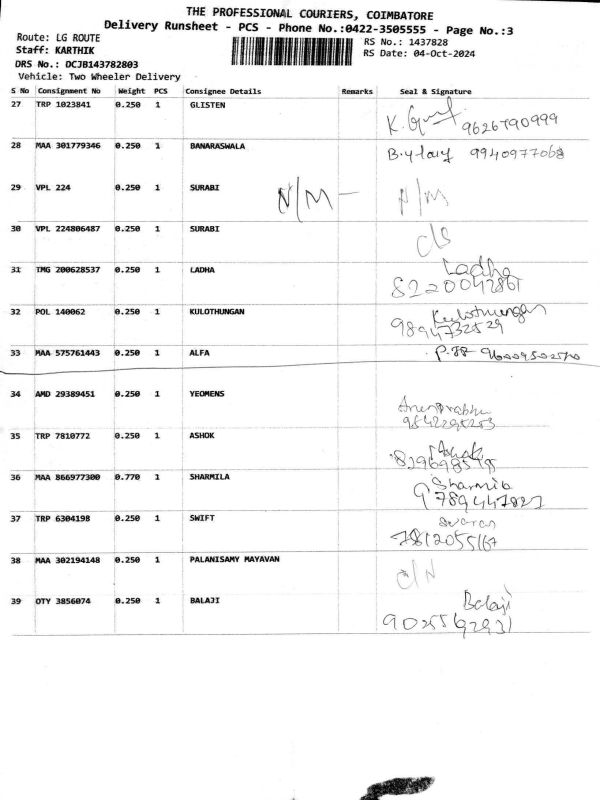 THE PROFESSIONAL COURIERS, COIMBATORE
Delivery Runsheet - PCS - Phone No.:0422-3505555 - Page No.:3
Route: LG ROUTE RS No.: 1437828
Staff: KARTHIK RS Date: 04-Oct-2024
DRS No.: DCJB143782803
Vehicle: Two Wheeler Delivery
S No Consignment No Weight PCS Consignee Details Remarks Seal & Signature
27 TRP 1023841 0.250 1 GLISTEN K. 9626790999
28 MAA 301779346 0.250 1 BANARASWALA 9940977068
29 VPL 224 0.250 1 SURABI N/M - N/M
30 VPL 224806487 0.250 1 SURABI
31 TMG 200628537 0.250 1 LADHA Ladha
8220042861
32 POL 140062 0.250 1 KULOTHUNGAN Kulothungan
9894732529
33 MAA 575761443 0.250 1 ALFA
34 AMD 29389451 0.250 1 YEOMENS
9842295253
35 TRP 7810772 0.250 1 ASHOK Ashok
36 MAA 866977300 0.770 1 SHARMILA Sharmila
9789447827
37 TRP 6304198 0.250 1 SWIFT
7812055167
38 MAA 302194148 0.250 1 PALANISAMY MAYAVAN
39 OTY 3856074 0.250 1 BALAJI Balaji
9025592931